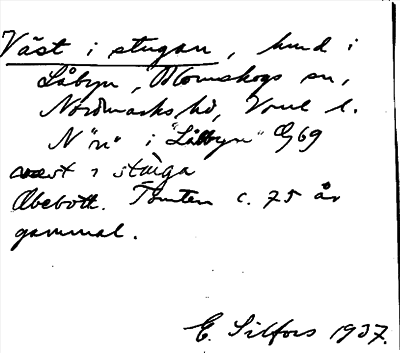 Väst i stugan, hmd i
Låbyn, Blomskogs sn,
Nordmarks hd, Vrml l.
N "n" i "Låbyn" G69
væst i stùga
Obebott. Tomten c. 75 år
gammal.
E. Silfors 1937.